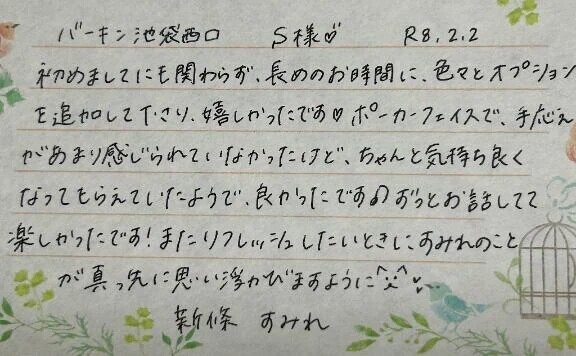 バーキン池袋西口 S様♡ R8.2.2
初めましてにも関わらず、長めのお時間に、色々とオプション
を追加して下さり、嬉しかったです♡ ポーカーフェイスで、手応え
があまり感じられていなかったけど、ちゃんと気持ち良く
なってもらえていたようで、良かったです♪ ずっとお話してて
楽しかったです！またリフレッシュしたいときに、すみれのこと
が真っ先に思い浮かびますように^ ^♡
新條 すみれ